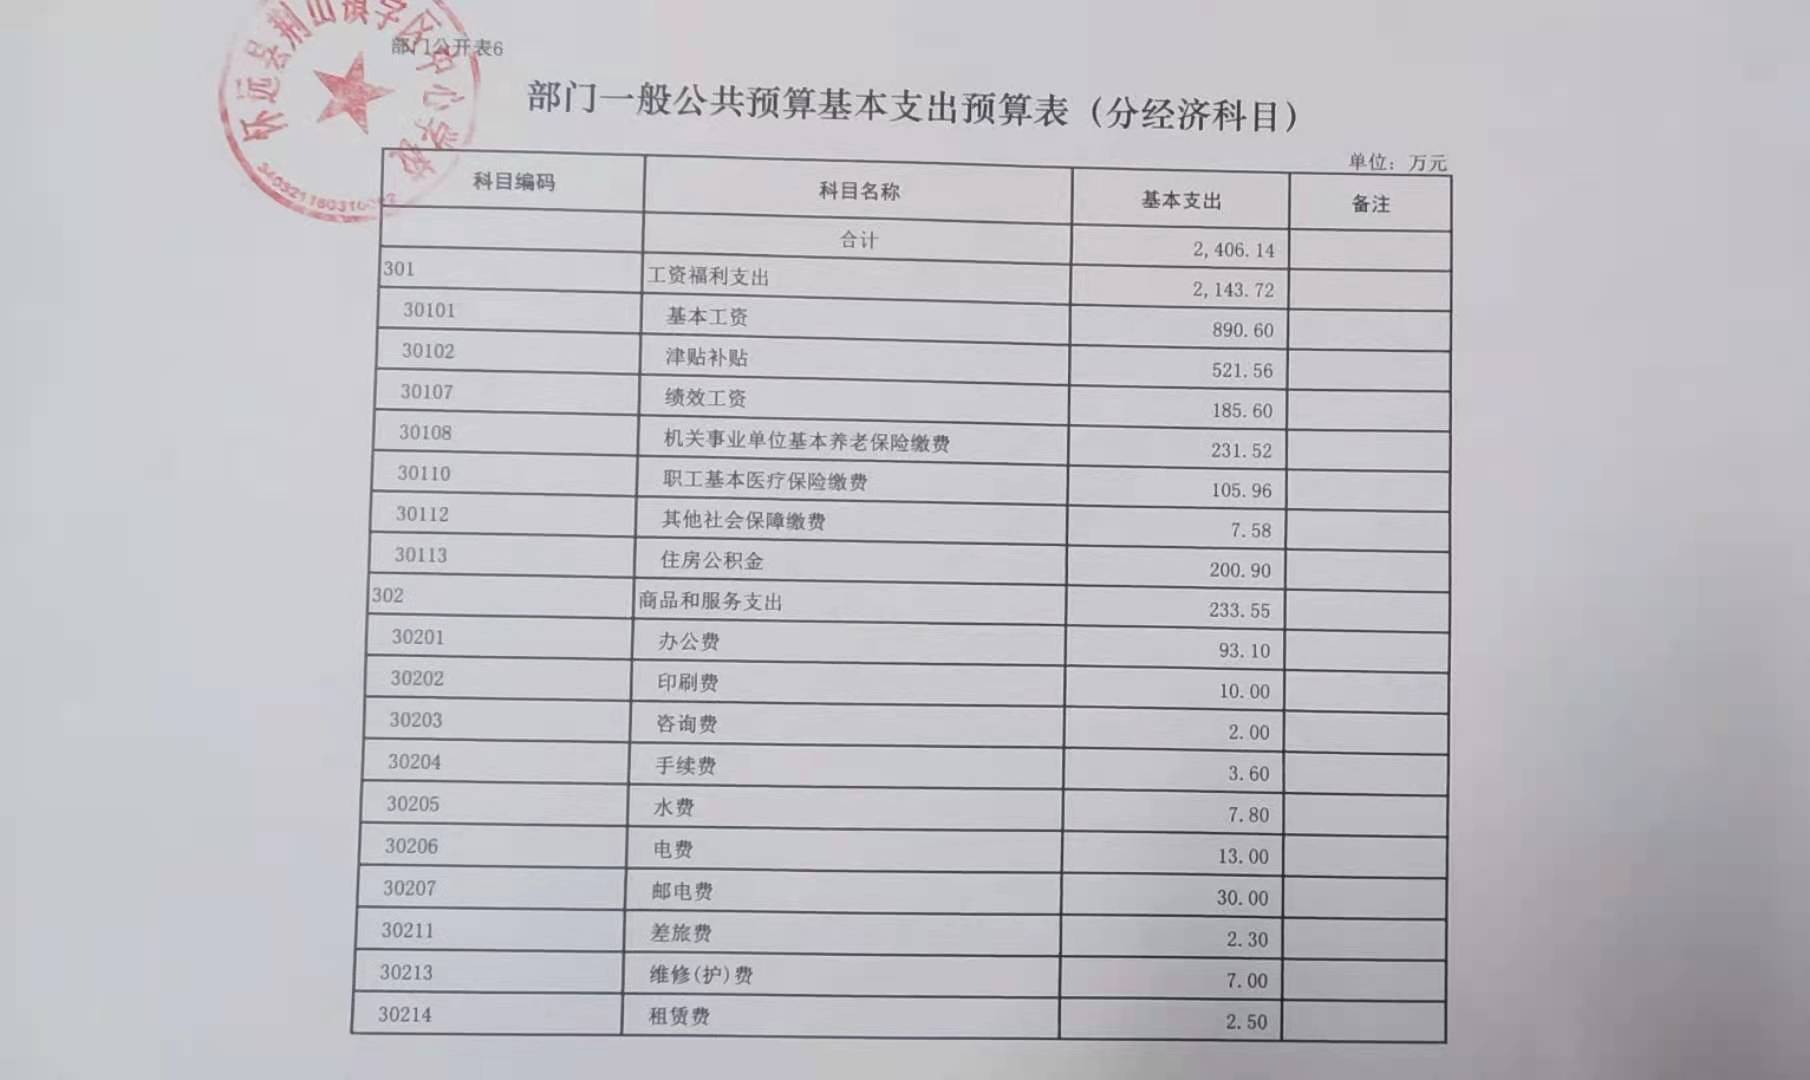 怀远县荆山镇学区中心学校
部门公开表6
部门一般公共预算基本支出预算表（分经济科目）
单位：万元
科目编码 科目名称 基本支出 备注
合计 2,406.14
301 工资福利支出 2,143.72
30101 基本工资 890.60
30102 津贴补贴 521.56
30107 绩效工资 185.60
30108 机关事业单位基本养老保险缴费 231.52
30110 职工基本医疗保险缴费 105.96
30112 其他社会保障缴费 7.58
30113 住房公积金 200.90
302 商品和服务支出 233.55
30201 办公费 93.10
30202 印刷费 10.00
30203 咨询费 2.00
30204 手续费 3.60
30205 水费 7.80
30206 电费 13.00
30207 邮电费 30.00
30211 差旅费 2.30
30213 维修(护)费 7.00
30214 租赁费 2.50